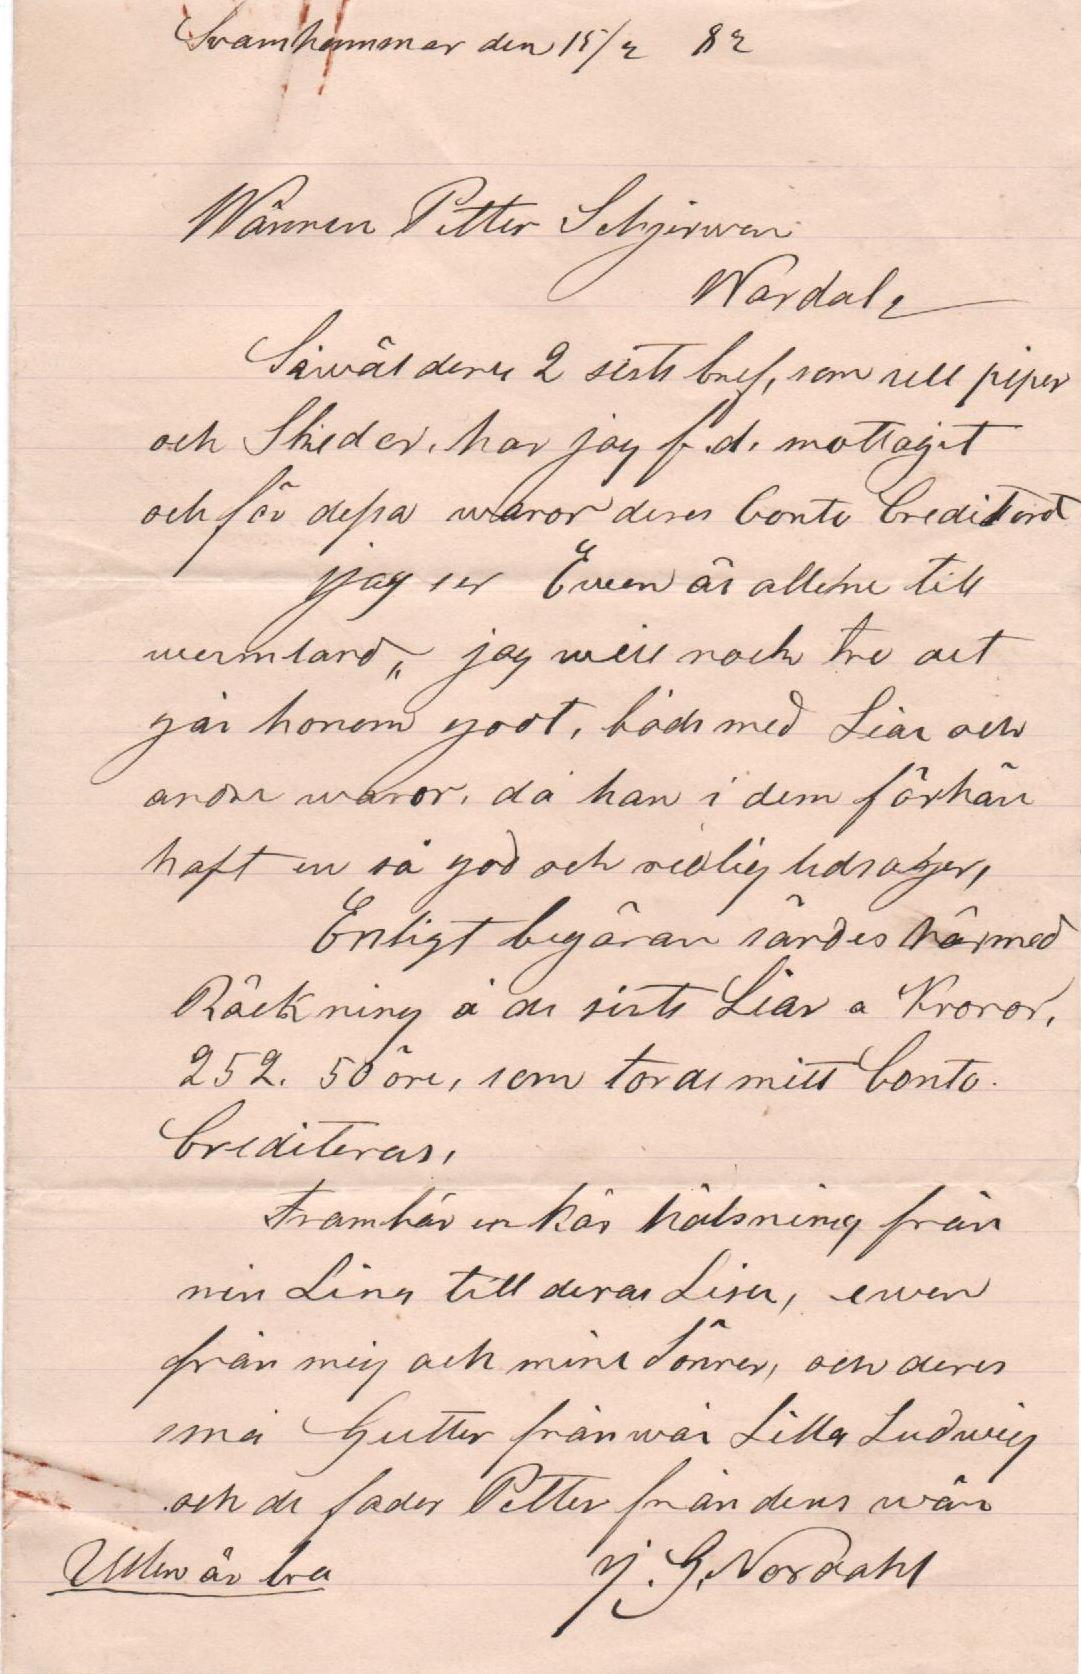 Svamhammar den 15/2 82
Wännen Petter Schjerwen
Wardal
Såwäl deres 2 sista bref, som ull piper
och Skieder, har jag f.d. mottagit
och för dessa waror deres Conto Crediterat
jag ser Ewen är allene till
wermland„ jag will nock tro att
går honom godt, både med Liar och
andra waror, då han i dem förhän
haft en så god och redlig
Enligt begäran sändes härmed
Räckning å de sista Liar a Kronor,
252. 50 öre, som torde mitt Conto.
Crediteras,
Frambär en kär hälsning från
min Lina till deras Lisa, ewen
från mig och mina Sönner, och deres
små Gutter från wår Lilla Ludwig
och de fader Petter från deres wän
Ullen är bra J. G. Nordahl